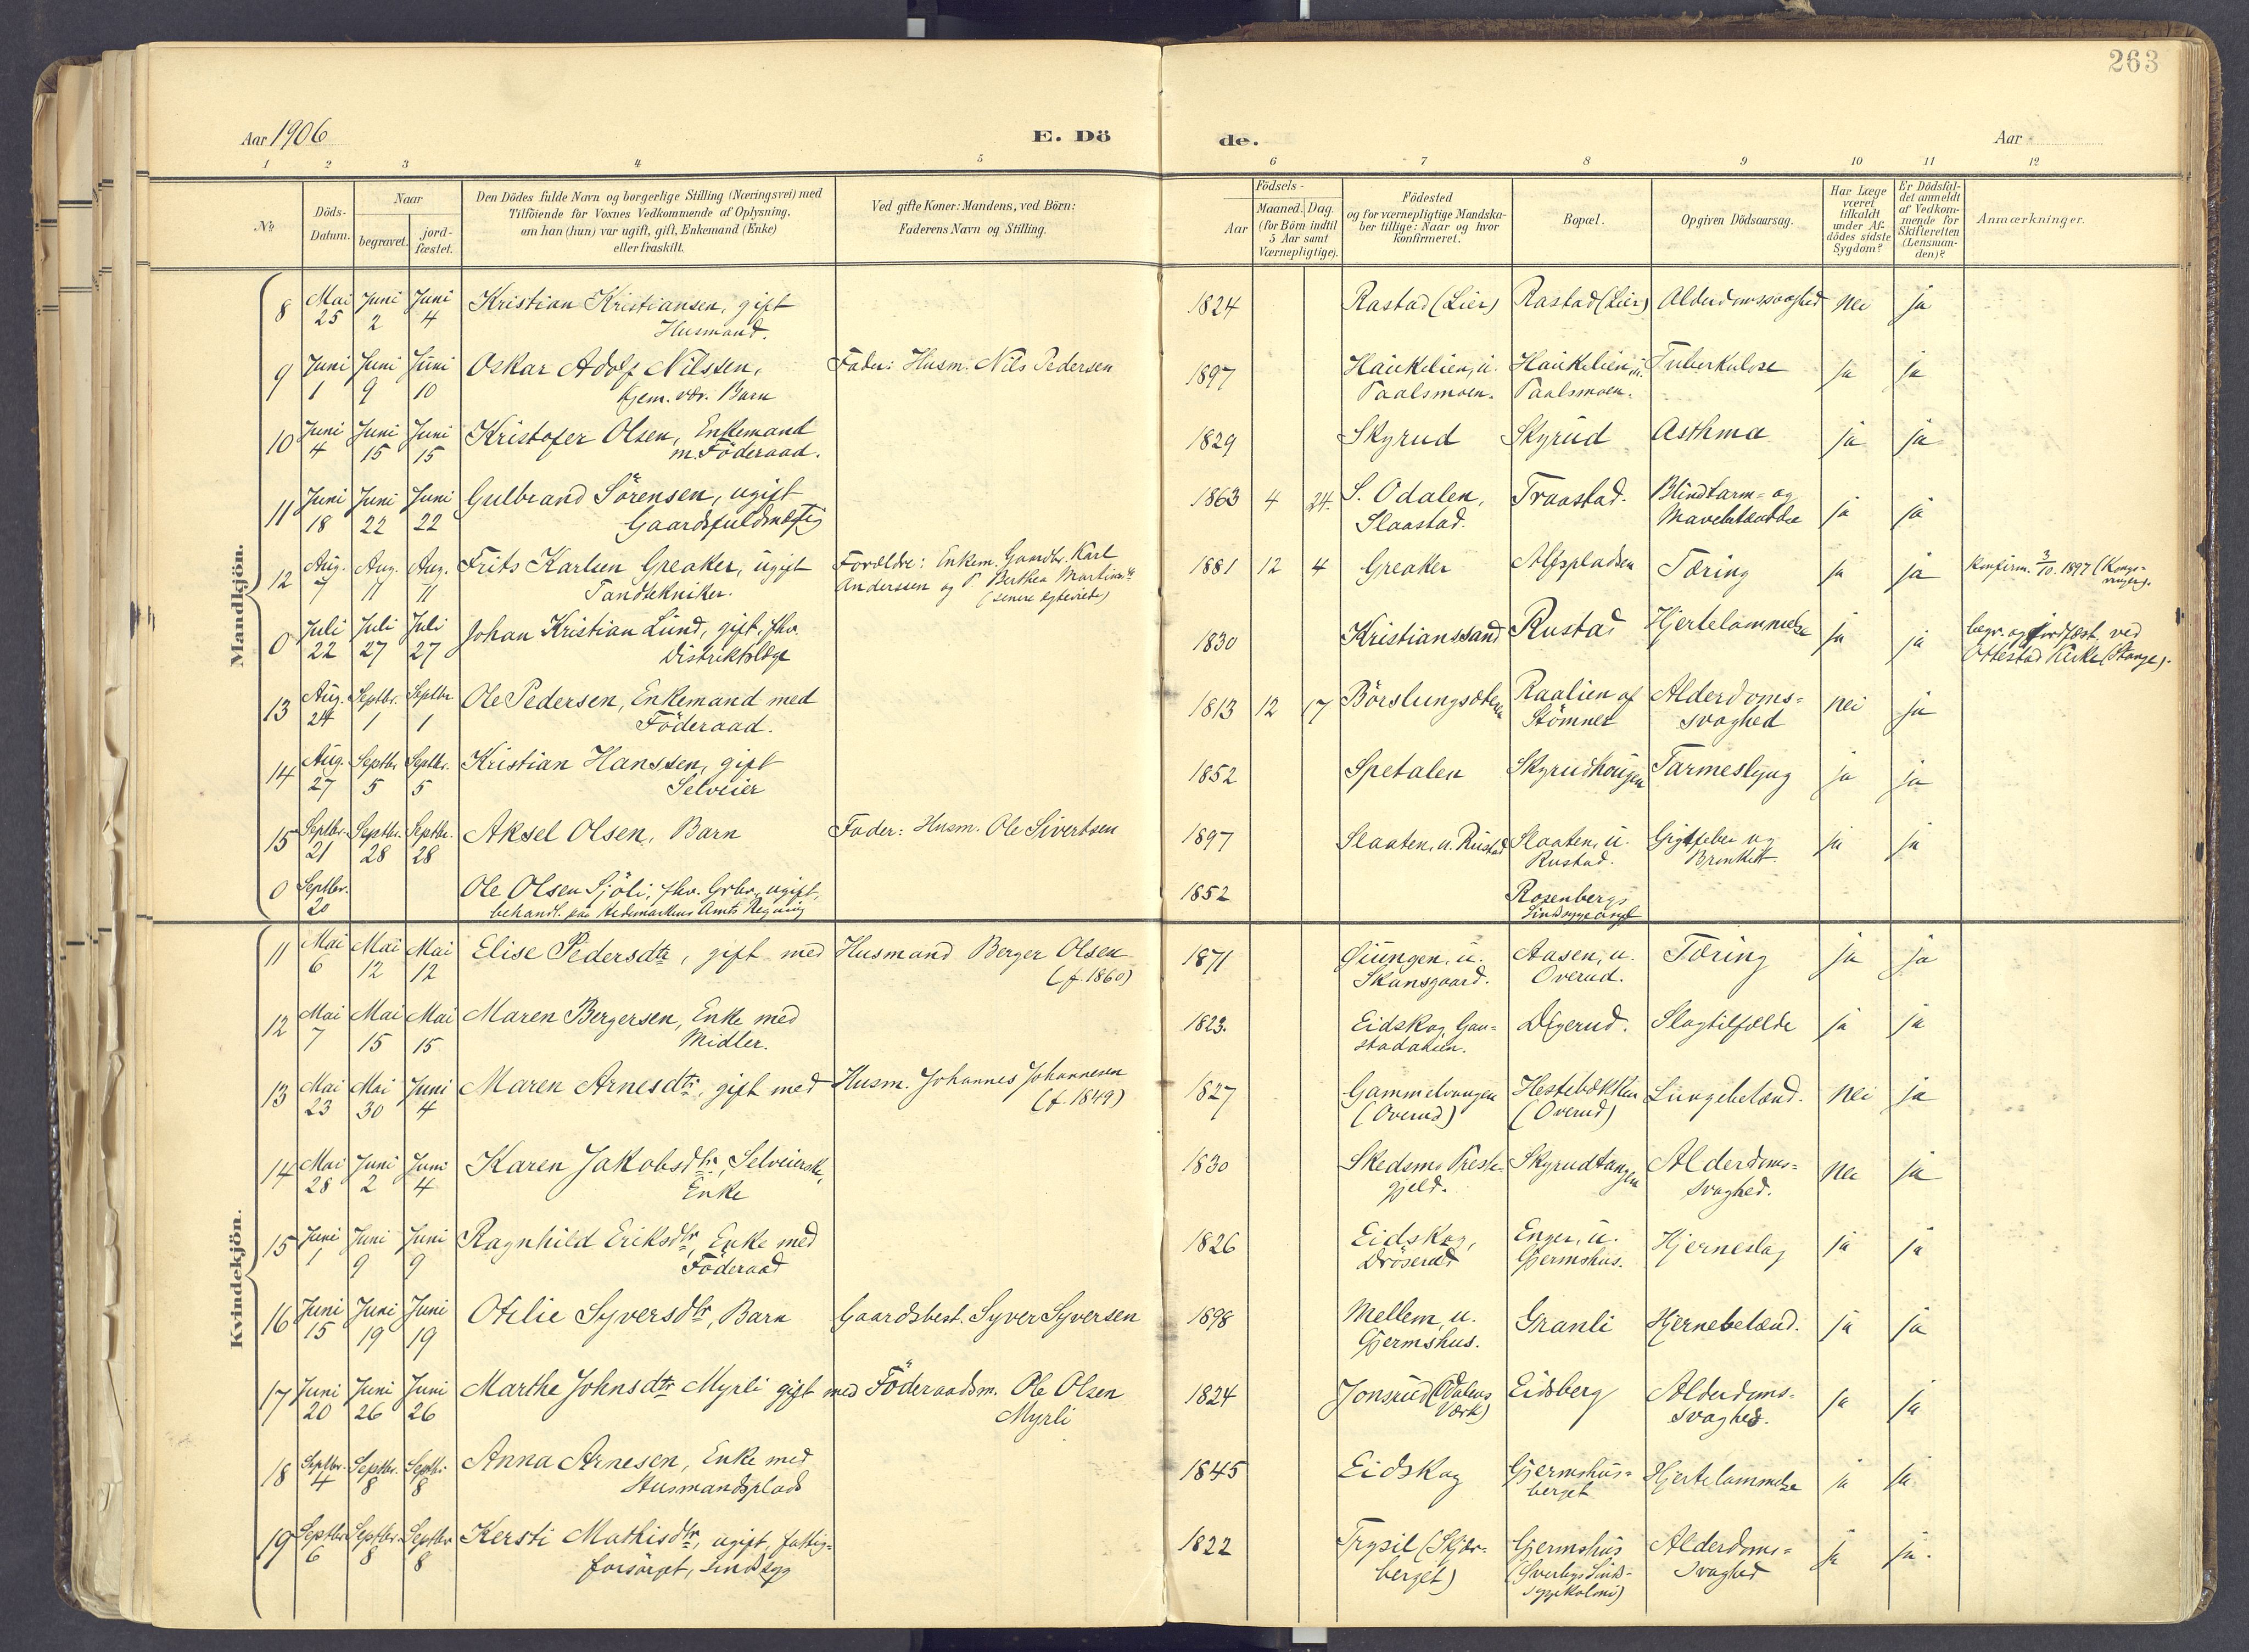 263
Aar 1906
E. Dö
de.
Aar
1 2 3 4 5 6 7 8 9 10 11 12
No
Döds-
Datum.
Naar
begravet.
jord-
fæstet.
Den Dödes fulde Navn og borgerlige Stilling (Næringsvei) med
Tilföiende for Voxnes Vedkommende af Oplysning,
om han (hun) var ugift, gift, Enkemand (Enke)
eller fraskilt.
Ved gifte Koner: Mandens, ved Börn:
Faderens Navn og Stilling.
Födsels-
Aar
Maaned. Dag.
(for Börn indtil
5 Aar samt
Værnepligtige).
Födested
og for værnepligtige Mandska-
ber tillige: Naar og hvor
Konfirmeret.
Bopæl.
Opgiven Dödsaarsag.
Har Læge
været
tilkaldt
under Af-
dödes sidste
Sygdom?
Er Dödsfal-
det anmeldt
af Vedkom-
mende for
Skifteretten
(Lensman-
den)?
Anmærkninger.
Mandkjön.
8 Mai 25 Juni 2 Juni 4 Kristian Kristiansen, gift 1824 Rastad (Lier) Rastad (Lier) Alderdomssvaghed nei ja
Husmand.
9 Juni 1 Juni 9 Juni 10 Oskar Adolf Nilssen, Fader: Husm. Nils Pedersen 1897 Haukelien, u. Haukelien, u. Tuberkulose ja ja
hjem. vær. Barn Paalsmoen. Paalsmoen.
10 Juni 4 Juni 15 Juni 15 Kristofer Olsen, Enkemand 1829 Skyrud Skyrud Asthma ja ja
m. Föderaad.
11 Juni 18 Juni 22 Juni 22 Gulbrand Sörensen, ugift 1863 4 24. S. Odalen, Traastad. Blindtarm- og ja ja
Gaardsfuldmægtig Slaastad.
12 Aug. 7 Aug. 11 Aug. 11 Frits Karluen Greaker, ugift Forældre: Enkem. Gaardbr. Karl 1881 12 4 Greaker Tæring ja ja Konfirm. 3/10. 1897 (Kongs-
Tandtekniker. Anderssen og P. Berthea Martinsdtr vinger).
(senere egteviede)
0 Juli 22 Juli 27 Juli 27 Johan Kristian Lund, gift, fhv. 1830 Kristianssand Rustad Hjertelammelse ja ja begr. og jordfæst. ved
Distriktslæge Ottestad Kirke (Stange).
13 Aug. 24 Septbr. 1 Septbr 1 Ole Pedersen, Enkemand med 1813 12 17 Börslungsæteren Raalien af Alderdoms- nei ja
Föderaad. Stömner svaghed
14 Aug. 27 Septbr 5 Septbr. 5 Kristian Hanssen, gift 1852 Spetalen Skyrudhougen Tarmeslyng ja ja
Selveier
15 Septbr. 21 Septbr. 28 Septbr. 28 Aksel Olsen, Barn Fader: Husm. Ole Sivertsen 1897 Slaaten, u. Rustad Slaaten, u. Gigtfeber og ja ja
Rustad. Bronkitt
0 Septbr. 20 Ole Olsen Sjöli, fhv. Grbr., ugift, 1852 Rosenbergs
behandl. paa Hedemarkens Amts Regning Sindssygeasyl
Kvindekjön.
11 Mai 6 Mai 12 Mai 12 Elise Pedersdtr, gift med Husmand Berger Olsen 1871 Aasen, u. Tæring ja ja
(f. 1860) Skansgaard. Overud.
12 Mai 7 Mai 15 Mai 15 Maren Bergersen, Enke med 1823. Eidskog, Gau- Digerud. Slagtilfælde ja ja
Midler. stadaasen.
13 Mai 23 Mai 30 Juni 4 Maren Arnesdtr, gift med Husm. Johannes Johannesen 1827 Gammelvangen Hestebækken Lungebetænd. nei ja
(f. 1849) (Overud) (Overud)
14 Mai 28 Juni 2 Juni 4 Karen Jakobsdtr, Selveierske, 1830 Skedsmo Preste- Skyrudtangen Alderdoms- nei ja
Enke gjeld. svaghed.
15 Juni 1 Juni 9 Juni 9 Ragnhild Eriksdtr, Enke med 1826 Eidskog, Enger, u. Hjerneslag ja ja
Föderaad Dröserud Gjermshus.
16 Juni 15 Juni 19 Juni 19 Otilie Syversdtr, Barn Gaardsbest. Syver Syversen 1898 Mellem, u. Granli Hjernebetænd. ja ja
Gjermshus.
17 Juni 20 Juni 26 Juni 26 Marthe Johnsdtr Myrli gift med Föderaadsm. Ole Olsen 1824 Jonsrud (Odalens Eidsberg Alderdoms- ja ja
Myrli Værk) svaghed.
18 Septbr. 4 Septbr. 8 Septbr. 8 Anna Arnesen, Enke med 1845 Eidskog Gjermshus- Hjertelammelse ja ja
Husmandsplads berget
19 Septbr 6 Septbr. 8 Septbr 8 Kersti Mathisdtr, ugift, fattig- 1822 Trysil (Skjær- Gjermshus Alderdoms- ja ja.
forsörget, sindssyg berget) (Överbys Sind- svaghed
sygekoloni)